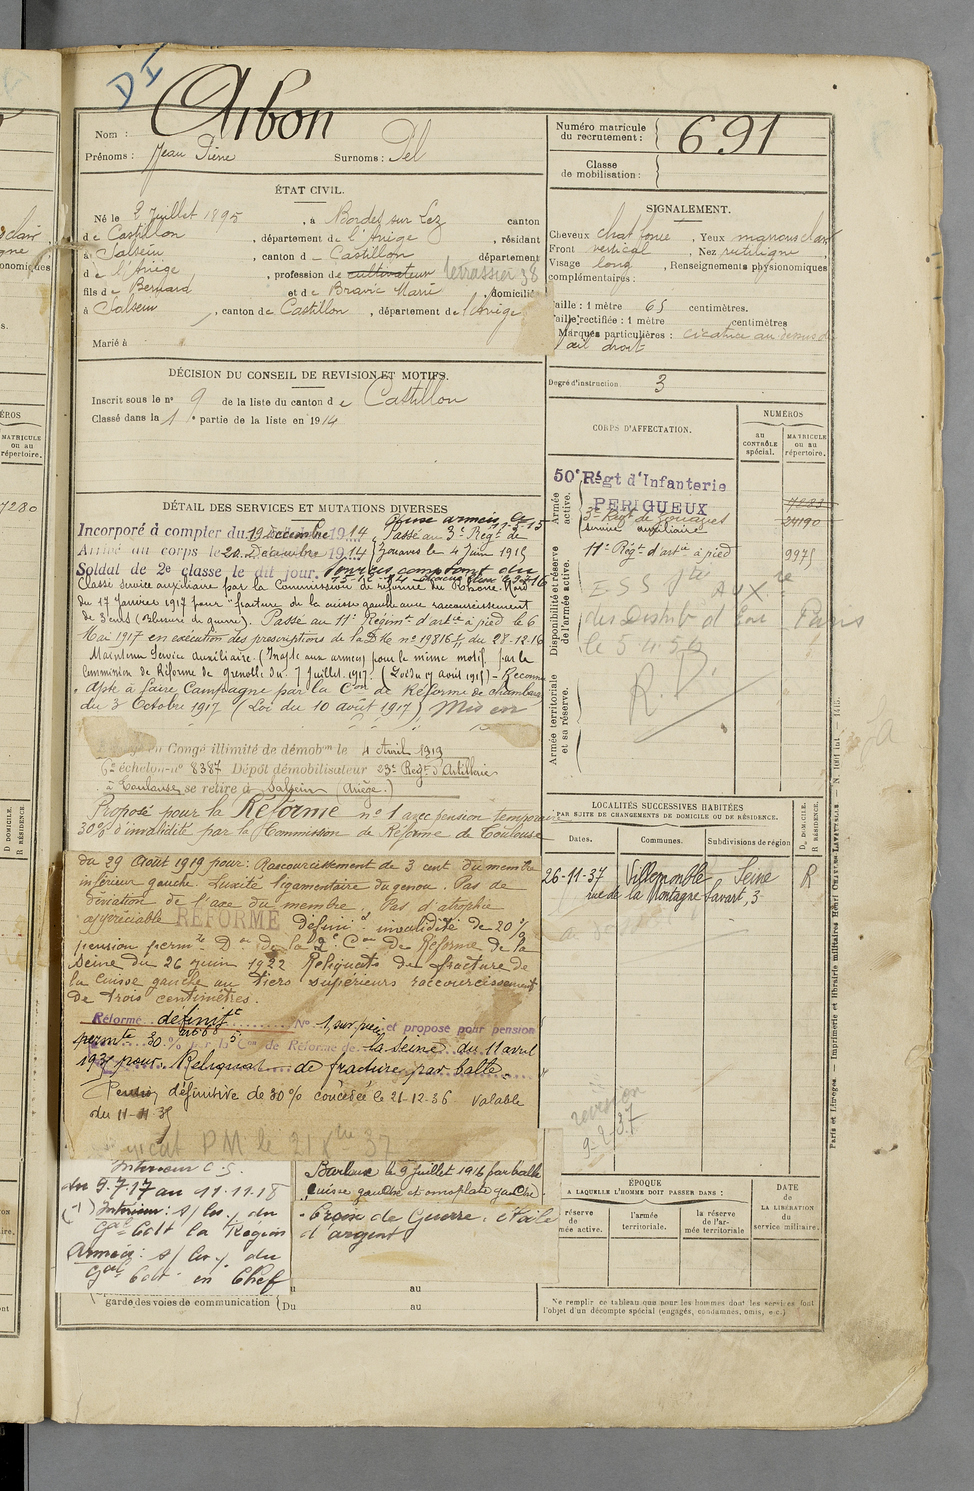 DI
Nom : Arbon
Prénoms : Jean Pierre Surnoms : Pel
Numéro matricule du recrutement : 691
Classe de mobilisation :
ÉTAT CIVIL.
Né le 2 Juillet 1895, à Bordes sur Lez canton
de Castillon, département de l'Ariège, résidant
à Salsein, canton de Castillon département
de l'Ariège, profession de cultivateur terrassier 38
fils de Bernard et de Bravic Marie, domiciliés
à Salsein, canton de Castillon, département de l'Ariège
Marié à
SIGNALEMENT.
Cheveux chat fonce, Yeux marrons clair
Front vertical, Nez rectiligne
Visage long, Renseignements physionomiques
complémentaires :
Taille : 1 mètre 65 centimètres.
Taille rectifiée : 1 mètre centimètres
Marques particulières : cicatrice au dessus de
l'œil droit
Degré d'instruction 3
DÉCISION DU CONSEIL DE REVISION ET MOTIFS.
Inscrit sous le no 9 de la liste du canton de Castillon
Classé dans la 1e partie de la liste en 1914
CORPS D'AFFECTATION.
NUMÉROS
AU CONTRÔLE SPÉCIAL.
MATRICULE OU AU RÉPERTOIRE.
Armée active.
50e Régt d'Infanterie
PERIGUEUX
3e Régt de Zouaves 24190
service auxiliaire
Disponibilité et réserve de l'armée active.
11e Régt d'artie à pied 9975
Paris
le 5
R.D.
Armée territoriale et sa réserve.
DÉTAIL DES SERVICES ET MUTATIONS DIVERSES
Incorporé à compter du 19 Décembre 1914
Passé au 3e Régt de
Arrivé au corps le 20 Décembre 1914 Zouaves le 4 Juin 1915
Soldat de 2e classe le dit jour.
Classé service auxiliaire par la Commission de réforme du Rhône Nord
du 17 Janvier 1917 pour "fracture de la cuisse gauche avec raccourcissement
de 3 cent (Blessure de guerre). Passé au 11e Régimt d'artie à pied le 6
Mai 1917 en exécution des prescriptions de la D.M. no 19816 du 28-12-16
Maintenu Service Auxiliaire. (Inapte aux armes) pour le même motif par la
Commission de Réforme de Grenoble du 7 Juillet 1917. (Loi du 17 août 1915) - Reconnu
Apte à faire Campagne par la Con de Réforme de Chambéry
du 3 Octobre 1917 (Loi du 10 août 1917) Mis en
Congé illimité de démobon le 4 Avril 1919
6e échelon no 8387 Dépôt démobilisateur 23e Régt d'Artillerie
à Toulouse se retire à Salsein (Ariège.)
Proposé pour la Réforme no 1 avec pension temporaire
30% d'invalidité par la Commission de Réforme de Toulouse
du 29 Août 1919 pour : Raccourcissement de 3 cent du membre
inférieur gauche. Laxité ligamentaire du genou. Pas de
déviation de l'axe du membre. Pas d'atrophie
appréciable RÉFORMÉ Définif invalidité de 20%
pension permte Don de la 2e Con De Réforme de la
Seine du 26 juin 1922 Reliquats de fracture de
la cuisse gauche au tiers supérieurs raccourcissement
de trois centimètres.
Réformé définitt No 1, sur pièces et proposé pour pension
permte 30 % par la 5e Con de Réforme de la Seine du 11 avril
1937 pour Reliquat de fracture par balle.
Pension définitive de 30% concédée le 21-12-36 valable
du 11-11-35
PM le 21 37
Intérieur C.S.
du 9.7.17 au 11.11.18
Intérieur : du
Gal Cdt la Région
Armées : du
Gal Cdt en Chef
Blessé le 9 Juillet 1916 par balle
cuisse gauche et omoplate gauche
Croix de Guerre, étoile
d'argent
au
garde des voies de communication (Du au
LOCALITÉS SUCCESSIVES HABITÉES
PAR SUITE DE CHANGEMENTS DE DOMICILE OU DE RÉSIDENCE.
Dates. Communes. Subdivisions de région
D. DOMICILE. R. RÉSIDENCE.
26-11-37 Villemomble Seine R
rue de la Montagne Savart, 3
révision
9-2-37
ÉPOQUE
A LAQUELLE L'HOMME DOIT PASSER DANS :
l'armée territoriale.
la réserve de l'armée territoriale
DATE de LA LIBÉRATION du service militaire.
Ne remplir ce tableau que pour les hommes dont les services font
l'objet d'un décompte spécial (engagés, condamnés, omis, etc.)
MATRICULE ou au répertoire.
7280